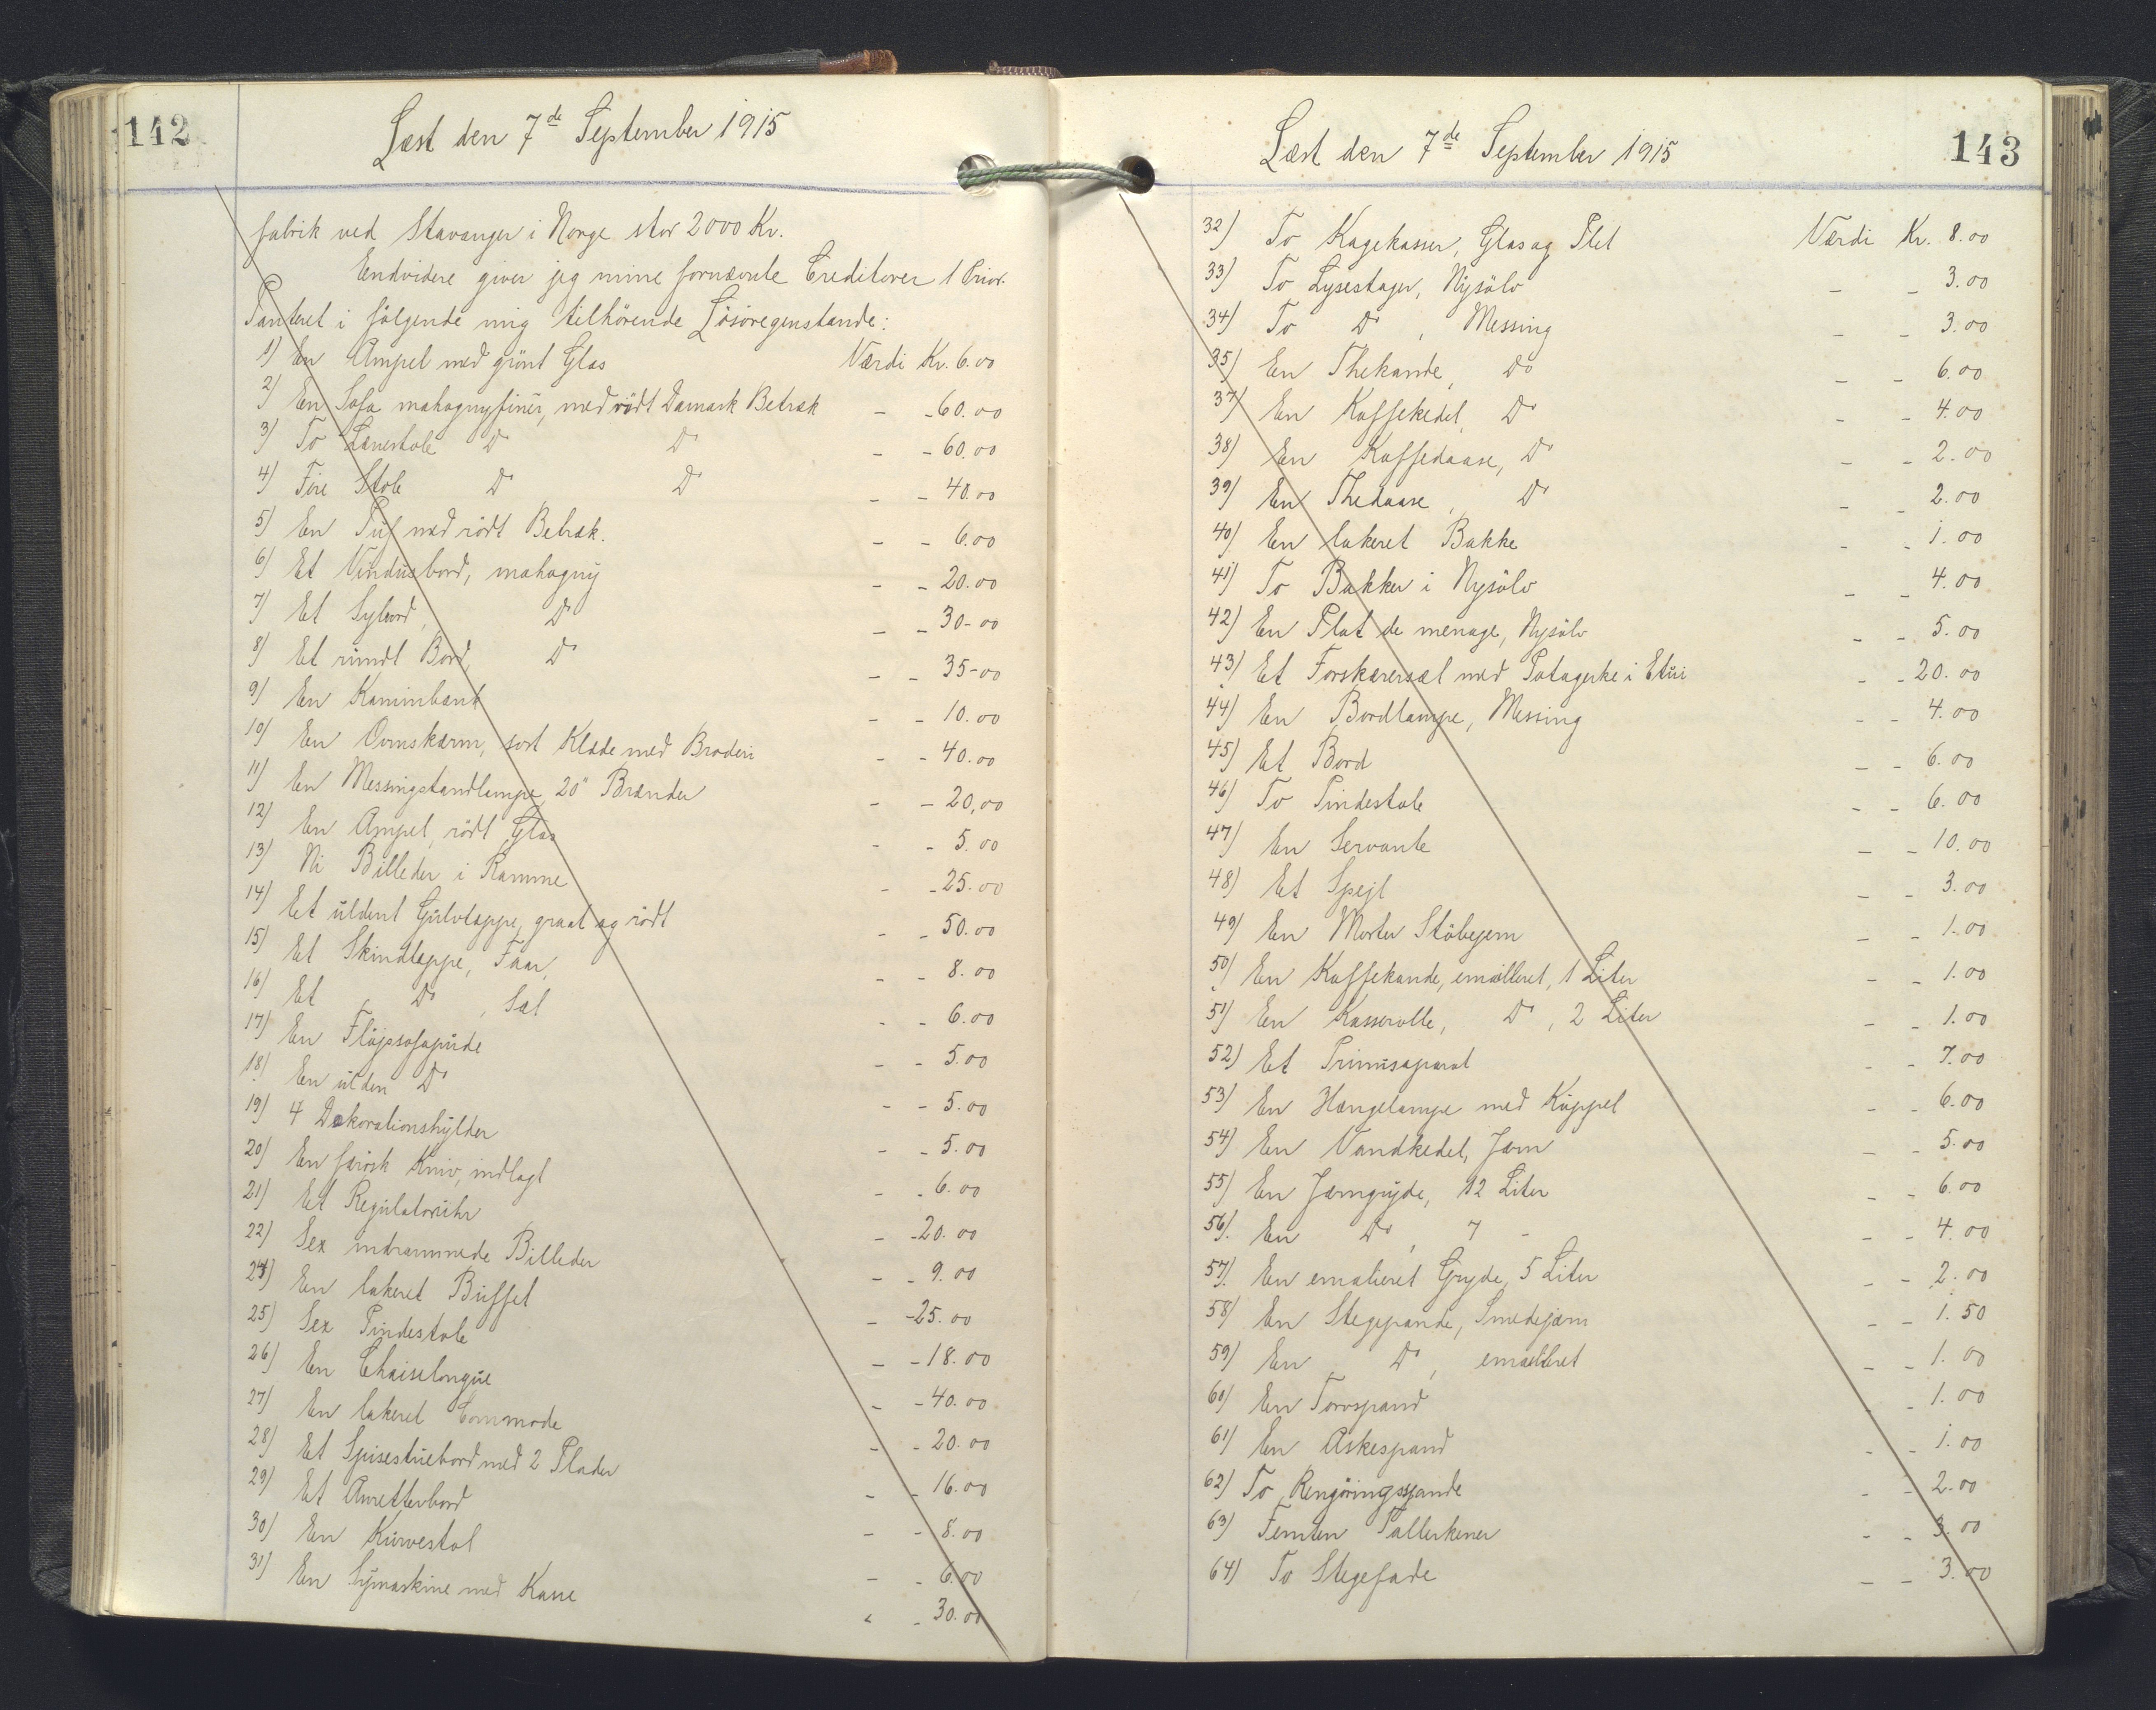 142
Læst den 7de September 1915
fabrik ved Stavanger i Norge stor 2000 Kr.
Endvidere giver jeg mine fornævnte Creditorer 1 Prior.
Panteret i følgende mig tilhörende Lösöregenstande:
1) En Ampel med grönt Glas Værdi Kr. 6.00
2) En Sofa mahognyfinér, med rödt Damask Betræk - - 60.00
3) To Lænestole Do Do - - 60.00
4) Fire Stole Do Do - - 40.00
5) En Puf med rödt Betræk. - - 6.00
6) Et Vinduesbord, mahogny - - 20.00
7) Et Sybord, Do - - 30-00
8) Et rundt Bord, Do - - 35-00
9) En Kaminbænk - - 10.00
10) En Ovnskærm, sort Klæde med Broderi - - 40.00
11) En Messingstandlampe 20" Brænder - - 20,00
12) En Ampel, rödt Glas - - 5.00
13) Ni Billeder i Ramme - - 25.00
14) Et uldent Gulvtæppe, graat og rödt - - 50.00
15) Et Skindtæppe, Faar, - - 8.00
16) Et Do, Sæl - - 6.00
17) En Flöjssofapude - - 5.00
18) En ulden Do - - 5.00
19) 4 Dekorationshylder - - 5.00
20) En færösk Kniv, indlagt - - 6.00
21) Et Regulatoruhr - - 20.00
22) Sex indrammede Billeder - - 9.00
24) En lakeret Buffet - - 25.00
25) Sex Pindestole - - 18.00
26) En Chaiselongue - - 40.00
27) En lakeret Commode - - 20.00
28) Et Spisestuebord med 2 Plader - - 16.00
29) Et Anretterbord - - 8.00
30) En Kurvestol - - 6.00
31) En Symaskine med Kasse - - 30.00
143
Læst den 7de September 1915
32) To Kagekasser, Glas og Plet Værdi Kr. 8.00
33) To Lysestager, Nysölv - - 3.00
34) To Do, Messing - - 3.00
35) En Thekande, Do - - 6.00
37) En Kaffekedel, Do - - 4.00
38) En Kaffedaase, Do - - 2.00
39) En Thedaase, Do - - 2.00
40) En lakeret Bakke - - 1.00
41) To Bakker i Nysölv - - 4.00
42) En Plat de menage, Nysölv - - 5.00
43) Et Forskærersæt med Potageske i Etui - - 20.00
44) En Bordlampe, Messing - - 4.00
45) Et Bord - - 6.00
46) To Pindestole - - 6.00
47) En Servante - - 10.00
48) Et Spejl - - 3.00
49) En Morter Stöbejern - - 1.00
50) En Kaffekande, emalleret, 1 Liter - - 1.00
51) En Kasserolle, Do, 2 Liter - - 1.00
52) Et Primusaparat - - 7.00
53) En Hængelampe med Kuppel - - 6.00
54) En Vandkedel, Jærn - - 5.00
55) En Jærngryde, 12 Liter - - 6.00
56) En Do, 7 - - - 4.00
57) En emalieret Gryde, 5 Liter - - 2.00
58) En Stegepande, Smedejærn - - 1.50
59) En Do, emalleret - - 1.00
60) En Torvspand - - 1.00
61) En Askespand - - 1.00
62) To Rengöringsspande - - 2.00
63) Femten Tallerkener - - 3.00
64) To Stegefade - - 3.00